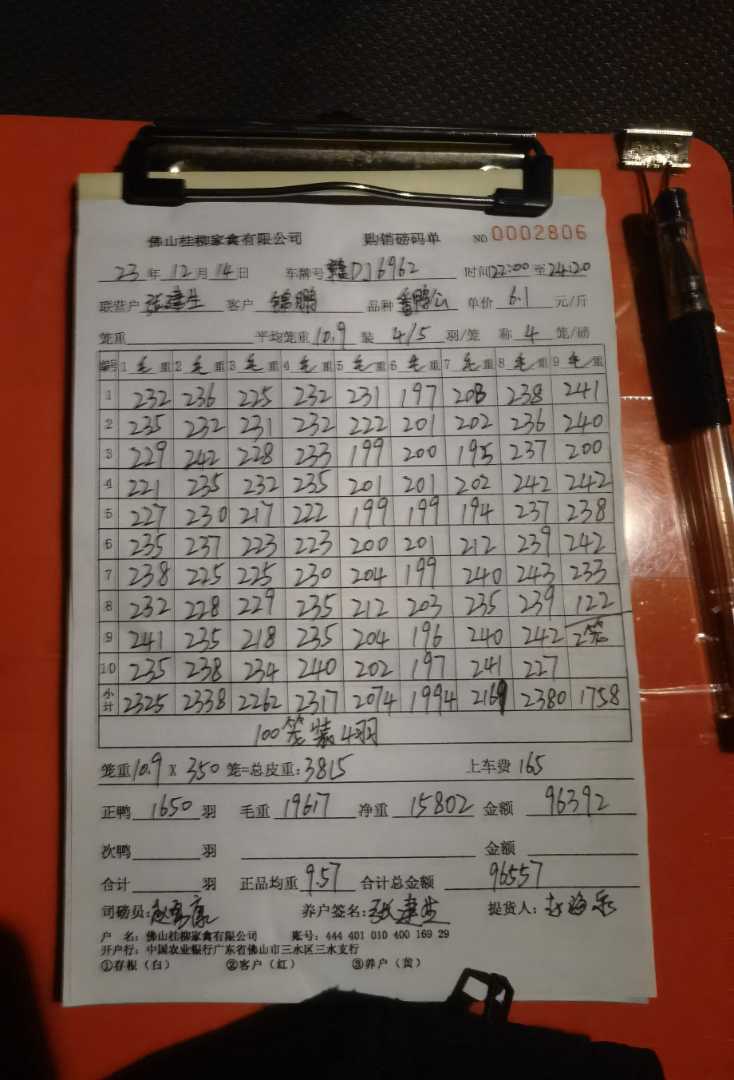 佛山桂柳家禽有限公司 购销磅码单 NO 0002806
23 年 12 月 14 日 车牌号 赣DJ6962 时间 22:00 至 24:20
联营户 张建生 客户 锦鹏 品种 番鸭公 单价 6.1 元/斤
笼重 平均笼重 10.9 装 4/5 羽/笼 称 4 笼/磅
编号 1 毛 重 2 毛 重 3 毛 重 4 毛 重 5 毛 重 6 毛 重 7 毛 重 8 毛 重 9 毛 重
1 232 236 225 232 231 197 208 238 241
2 235 232 231 232 222 201 202 236 240
3 229 242 228 233 199 200 195 237 200
4 221 235 232 235 201 201 202 242 242
5 227 230 217 222 199 199 194 237 238
6 235 237 223 223 200 201 212 239 242
7 238 225 225 230 204 199 240 243 233
8 232 228 229 235 212 203 235 239 122
9 241 235 218 235 204 196 240 242 2笼
10 235 238 234 240 202 197 241 227
小计 2325 2338 2262 2317 2074 1994 2169 2380 1758
100笼装4羽
笼重 10.9 X 350 笼=总皮重: 3815 上车费 165
正鸭 1650 羽 毛重 19617 净重 15802 金额 96392
次鸭 羽 金额
合计 羽 正品均重 9.57 合计总金额 96557
司磅员: 养户签名: 张建生 提货人:
户 名: 佛山桂柳家禽有限公司 账号: 444 401 010 400 169 29
开户行: 中国农业银行广东省佛山市三水区三水支行
①存根（白） ②客户（红） ③养户（黄）